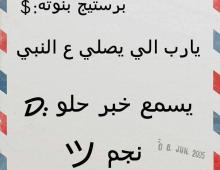 برستيج بنوته:$
يارب الي يصلي ع النبي
يسمع خبر حلو :D
نجم ツ
0 8 JUN. 2005